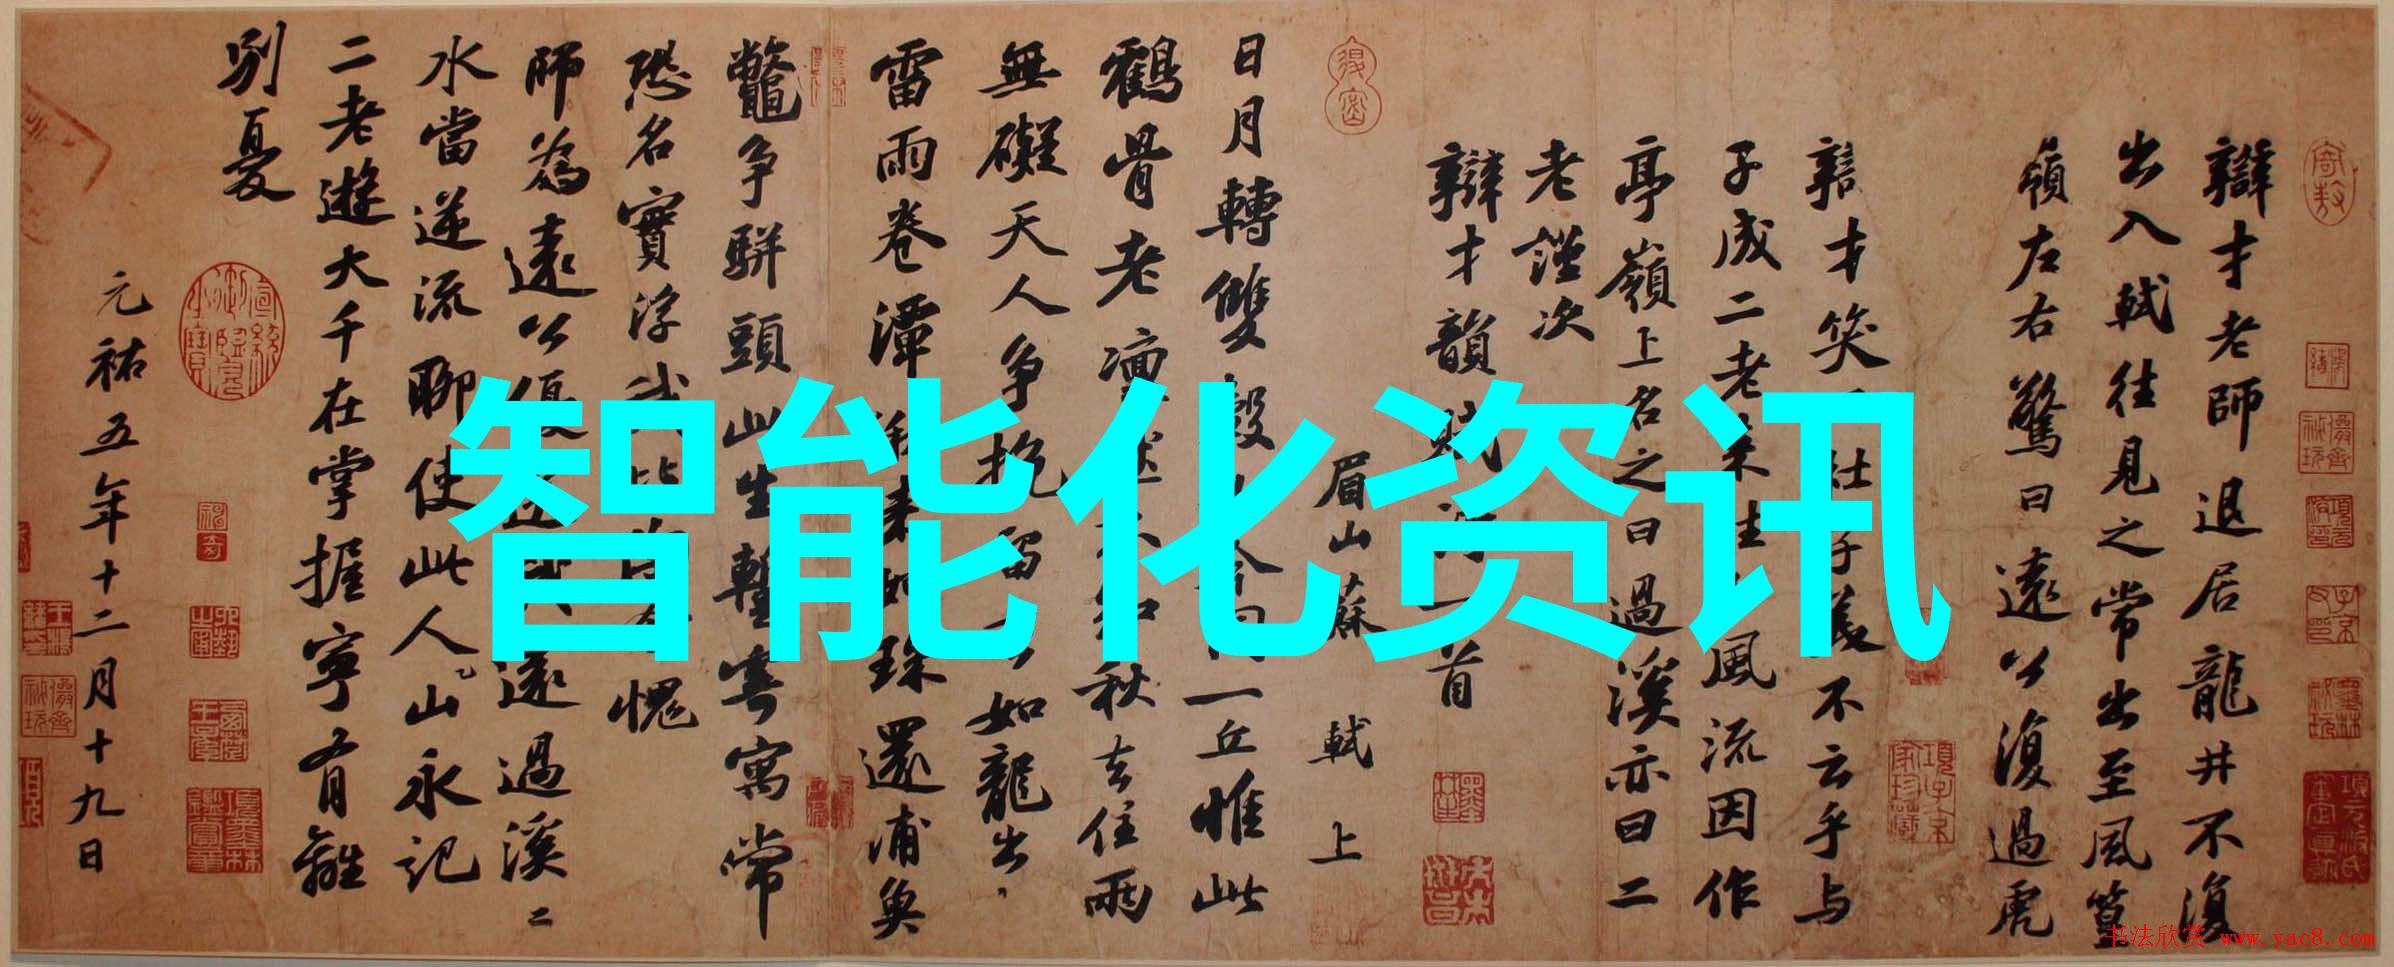 辯才老師退居龍井不復
出入軾往見之常出至風篁
嶺左右驚曰遠公復過虎
辯才笑杜子美不云乎与
子成二老來往風流因作
亭嶺上名之曰過溪亦曰二
老謹次
辯才韻賦詩一首
眉山蘇軾上
日月轉雙轂同一丘惟此
鶴骨老凛不知秋去住兩
無礙天人争挽留去如龍出
雷雨卷潭來如珠還浦魚
鼈争駢頭此生蹔寄寓常
恐名實浮我比愧
師為遠公優送我還過溪二
水當逆流聊使此人山永記
二老遊大千在掌握寧有離
別憂
元祐五年十二月十九日
智能化资讯
书法欣赏 www.yac8.com